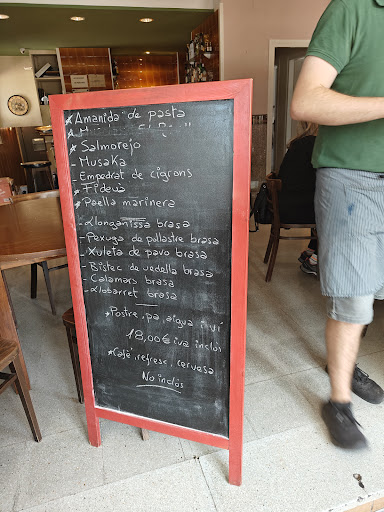 * Amanida de pasta
* Salmorejo
- Musaka
- Empedrat de cigrons
* Fideuà
* Paella marinera
- Llonganissa brasa
- Pexuga de pollastre brasa
- Xuleta de pavo brasa
- Bistec de vedella brasa
- Calamars brasa
- Llobarret brasa
* Postre, pa, aigua i vi
18,00€ iva inclòs
* Café, refresc, cervesa
No inclòs